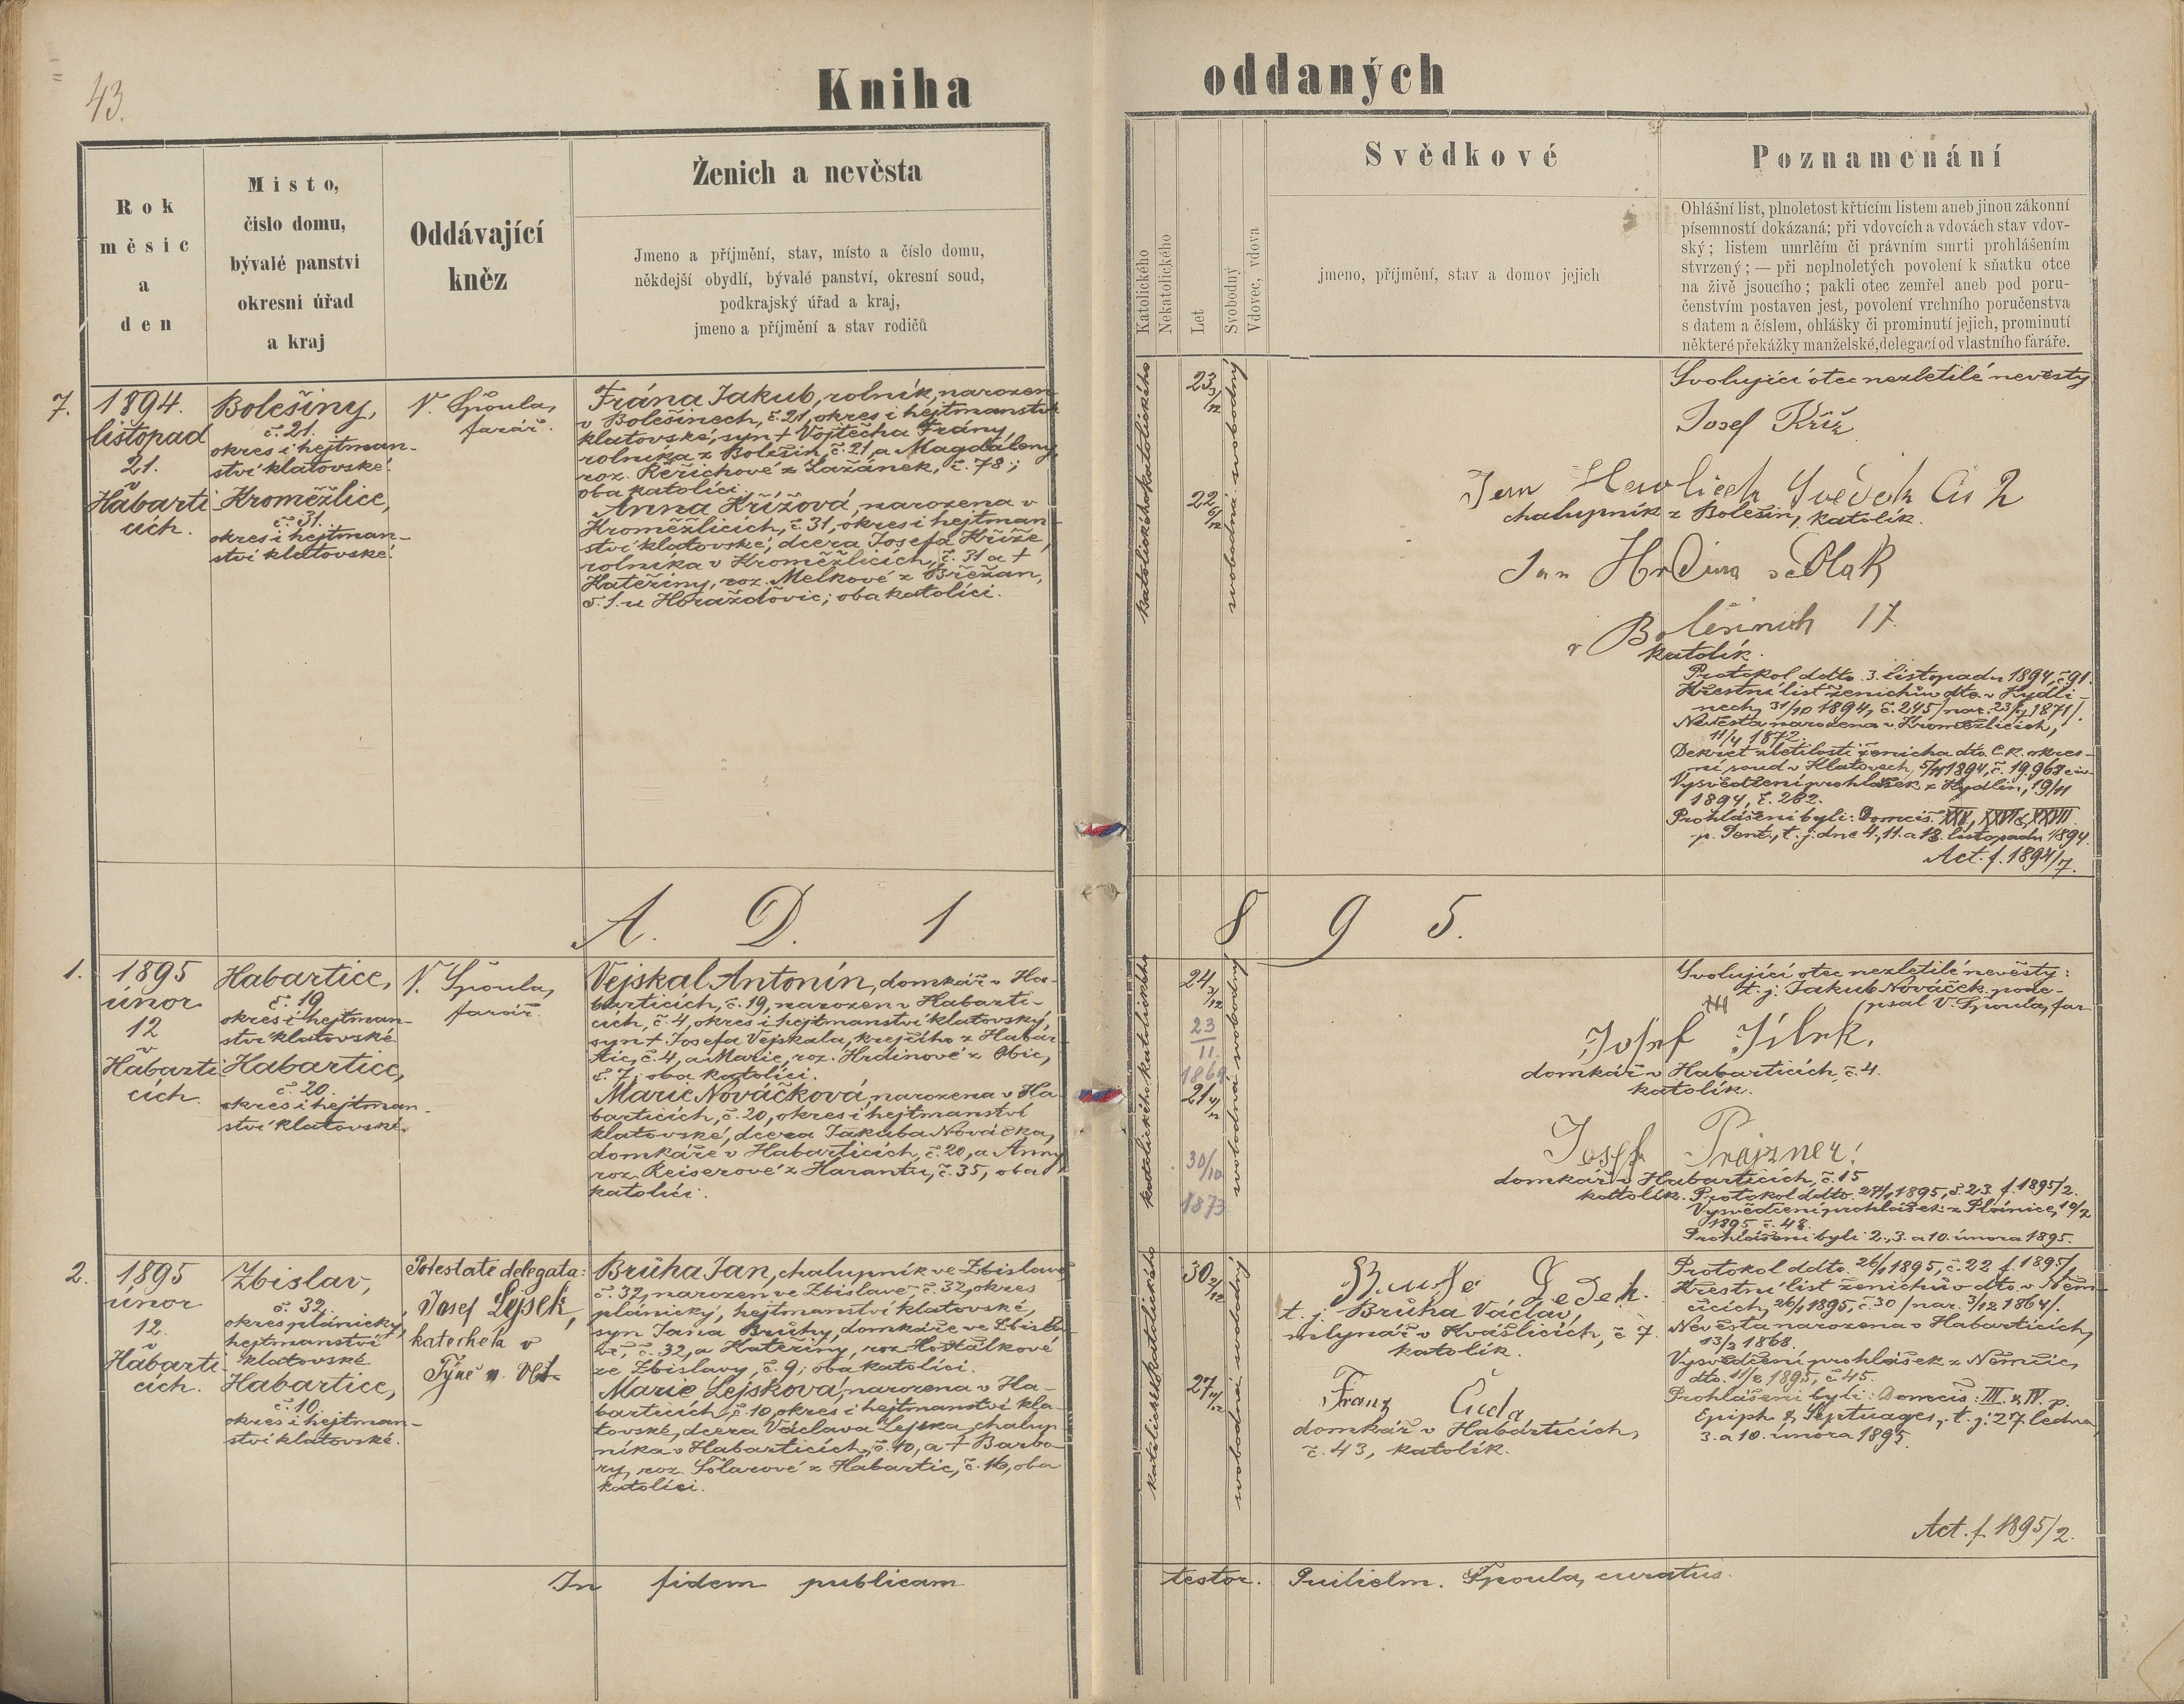 43.
Kniha oddaných
Rok
měsíc
a
den
Místo,
číslo domu,
bývalé panství
okresní úřad
a kraj
Oddávající
kněz
Ženich a nevěsta
Jmeno a příjmění, stav, místo a číslo domu,
někdejší obydlí, bývalé panství, okresní soud,
podkrajský úřad a kraj,
jmeno a příjmění a stav rodičů
Katolického
Nekatolického
Let
Svobodný
Vdovec, vdova
Svědkové
jmeno, příjmění, stav a domov jejich
Poznamenání
Ohlášní list, plnoletost křtícím listem aneb jinou zákonní
písemností dokázaná; při vdovcích a vdovách stav vdov-
ský; listem umrlčím či právním smrti prohlášením
stvrzený; — při neplnoletých povolení k sňatku otce
na živě jsoucího; pakli otec zemřel aneb pod poru-
čenstvím postaven jest, povolení vrchního poručenstva
s datem a číslem, ohlášky či prominutí jejich, prominutí
některé překážky manželské, delegací od vlastního faráře.
7.
1894.
listopad
21.
v
Habarti
cích.
Bolešiny,
č. 21.
okres i hejtman-
ství klatovské.
Kroměžlice,
č. 31.
okres i hejtman-
ství klatovské.
V. Špoula,
farář.
Frána Jakub, rolník, narozen
v Bolešinech, č. 21, okres i hejtmanství
klatovské, syn † Vojtěcha Frány,
rolníka z Bolešin, č. 21, a Magdaleny,
roz. Řeřichové z Lažánek, č. 78;
oba katolíci.
Anna Křížová, narozena v
Kroměžlicích, č. 31, okres i hejtman-
ství klatovské, dcera Josefa Kříže,
rolníka v Kroměžlicích, č. 31 a †
Kateřiny, roz. Melkové z Břežan,
č. 1. u Horažďovic; oba katolíci.
katolického katolického
23 3/12
22 6/12
svobodná svobodný
Svolující otec nezletilé nevěsty
Josef Kříž
Jan Hawlicek Svědek Čis 2
chalupník z Bolešin, katolík.
Jan Hrdina sedlak
v Bolešinich 17.
katolík.
Protokol ddto. 3. listopadu 1894, č. 91.
Křestní list ženichův dto. v Kydli-
nech, 31/10 1894, č. 245 /nar. 1871/.
Nevěsta narozena v Kroměžlicích,
11/4 1872.
Dekret zletilosti ženicha dto. C. k. okres-
ní soud v Klatovech, 5/11 1894, č. 19.968 civ.
Vysvědčení prohlášek z Kydlin, 19/11
1894, č. 282.
Prohlášeni byli: Domcis. XXV, XXVI & XXVII
p. Pent., t. j. dne 4., 11. a 18. listopadu 1894.
Act. f. 1894/7.
A. D. 1 8 9 5.
1.
1895
únor
12
v
Habarti
cích.
Habartice,
č. 19
okres i hejtman-
ství klatovské.
Habartice,
č. 20.
okres i hejtman-
ství klatovské.
V. Špoula,
farář.
Vejskal Antonín, domkář v Ha-
barticích, č. 19, narozen v Habarti-
cích, č. 4, okres i hejtmanství klatovský,
syn † Josefa Vejskala, krejčího z Habar-
tic, č. 4, a Marie, roz. Hrdinové z Obic,
č. 7; oba katolíci.
Marie Nováčková, narozena v Ha-
barticích, č. 20, okres i hejtmanství
klatovské, dcera Jakuba Nováčka,
domkáře v Habarticích, č. 20, a Anny
roz. Reiserové z Harantu, č. 35, oba
katolíci.
24 3/12
23
11.
1869
21 4/12
30/10
1873
svobodná svobodný
Svolující otec nezletilé nevěsty:
t. j. Jakub Nováček. pode-
psal V. Špoula, far.
domkář v Habarticích, č. 4.
katolík.
Josef Prajzner:
domkář v Habarticích, č. 15
katolík.
Protokol ddto. 1895, č. 23. f. 1895/2.
Vysvědčení prohlášek z Plánice, 10/2
1895 č. 48.
Prohlášeni byli 2., 3. a 10. února 1895.
2.
1895
únor
12.
v
Habarti
cích.
Zbislav,
č. 32,
okres plánický,
hejtmanství
klatovské
Habartice,
č. 10.
okres i hejtman-
ství klatovské.
Potestate delegata:
Josef Lejsek,
katecheta v
Týně n. Vlt.
Brůha Jan, chalupník ve Zbislavě,
č. 32, narozen ve Zbislavě č. 32, okres
plánický, hejtmanství klatovské,
syn Jana Brůhy, domkáře ve Zbisla-
vě, č. 32, a Kateřiny, roz. Hoštálkové
ze Zbislavy, č. 9; oba katolíci.
Marie Lejsková, narozena v Ha-
barticích, č. 10, okres i hejtmanství kla-
tovské, dcera Václava Lejska, chalup-
níka v Habarticích, č. 10, a † Barbo-
ry, roz. Šolarové z Habartic, č. 16, oba
katolíci.
katolického katolického
30 2/12
27 11/12
svobodná svobodný
t. j. Brůha Václav,
mlynář v Kvášlicích, č. 7.
katolík.
Franz Čuda
domkář v Habarticích,
č. 43, katolík.
Protokol ddto. 26/1 1895, č. 22 f. 1895/.
Křestní list ženichův dto. v Něm-
čicích, 26/1 1895, č. 30 /nar. 3/12 1864/.
Nevěsta narozena v Habarticích,
13/3 1868.
Vysvědčení prohlášek z Němčic,
dto. 11/2 1895, č. 45.
Prohlášeni byli: Domcis: III & IV. p.
Epiph & Septuages., t. j: 27. ledna,
3. a 10. února 1895.
Act. f. 1895/2.
In fidem publicam testor. Guilielm. Špoula, curatus.